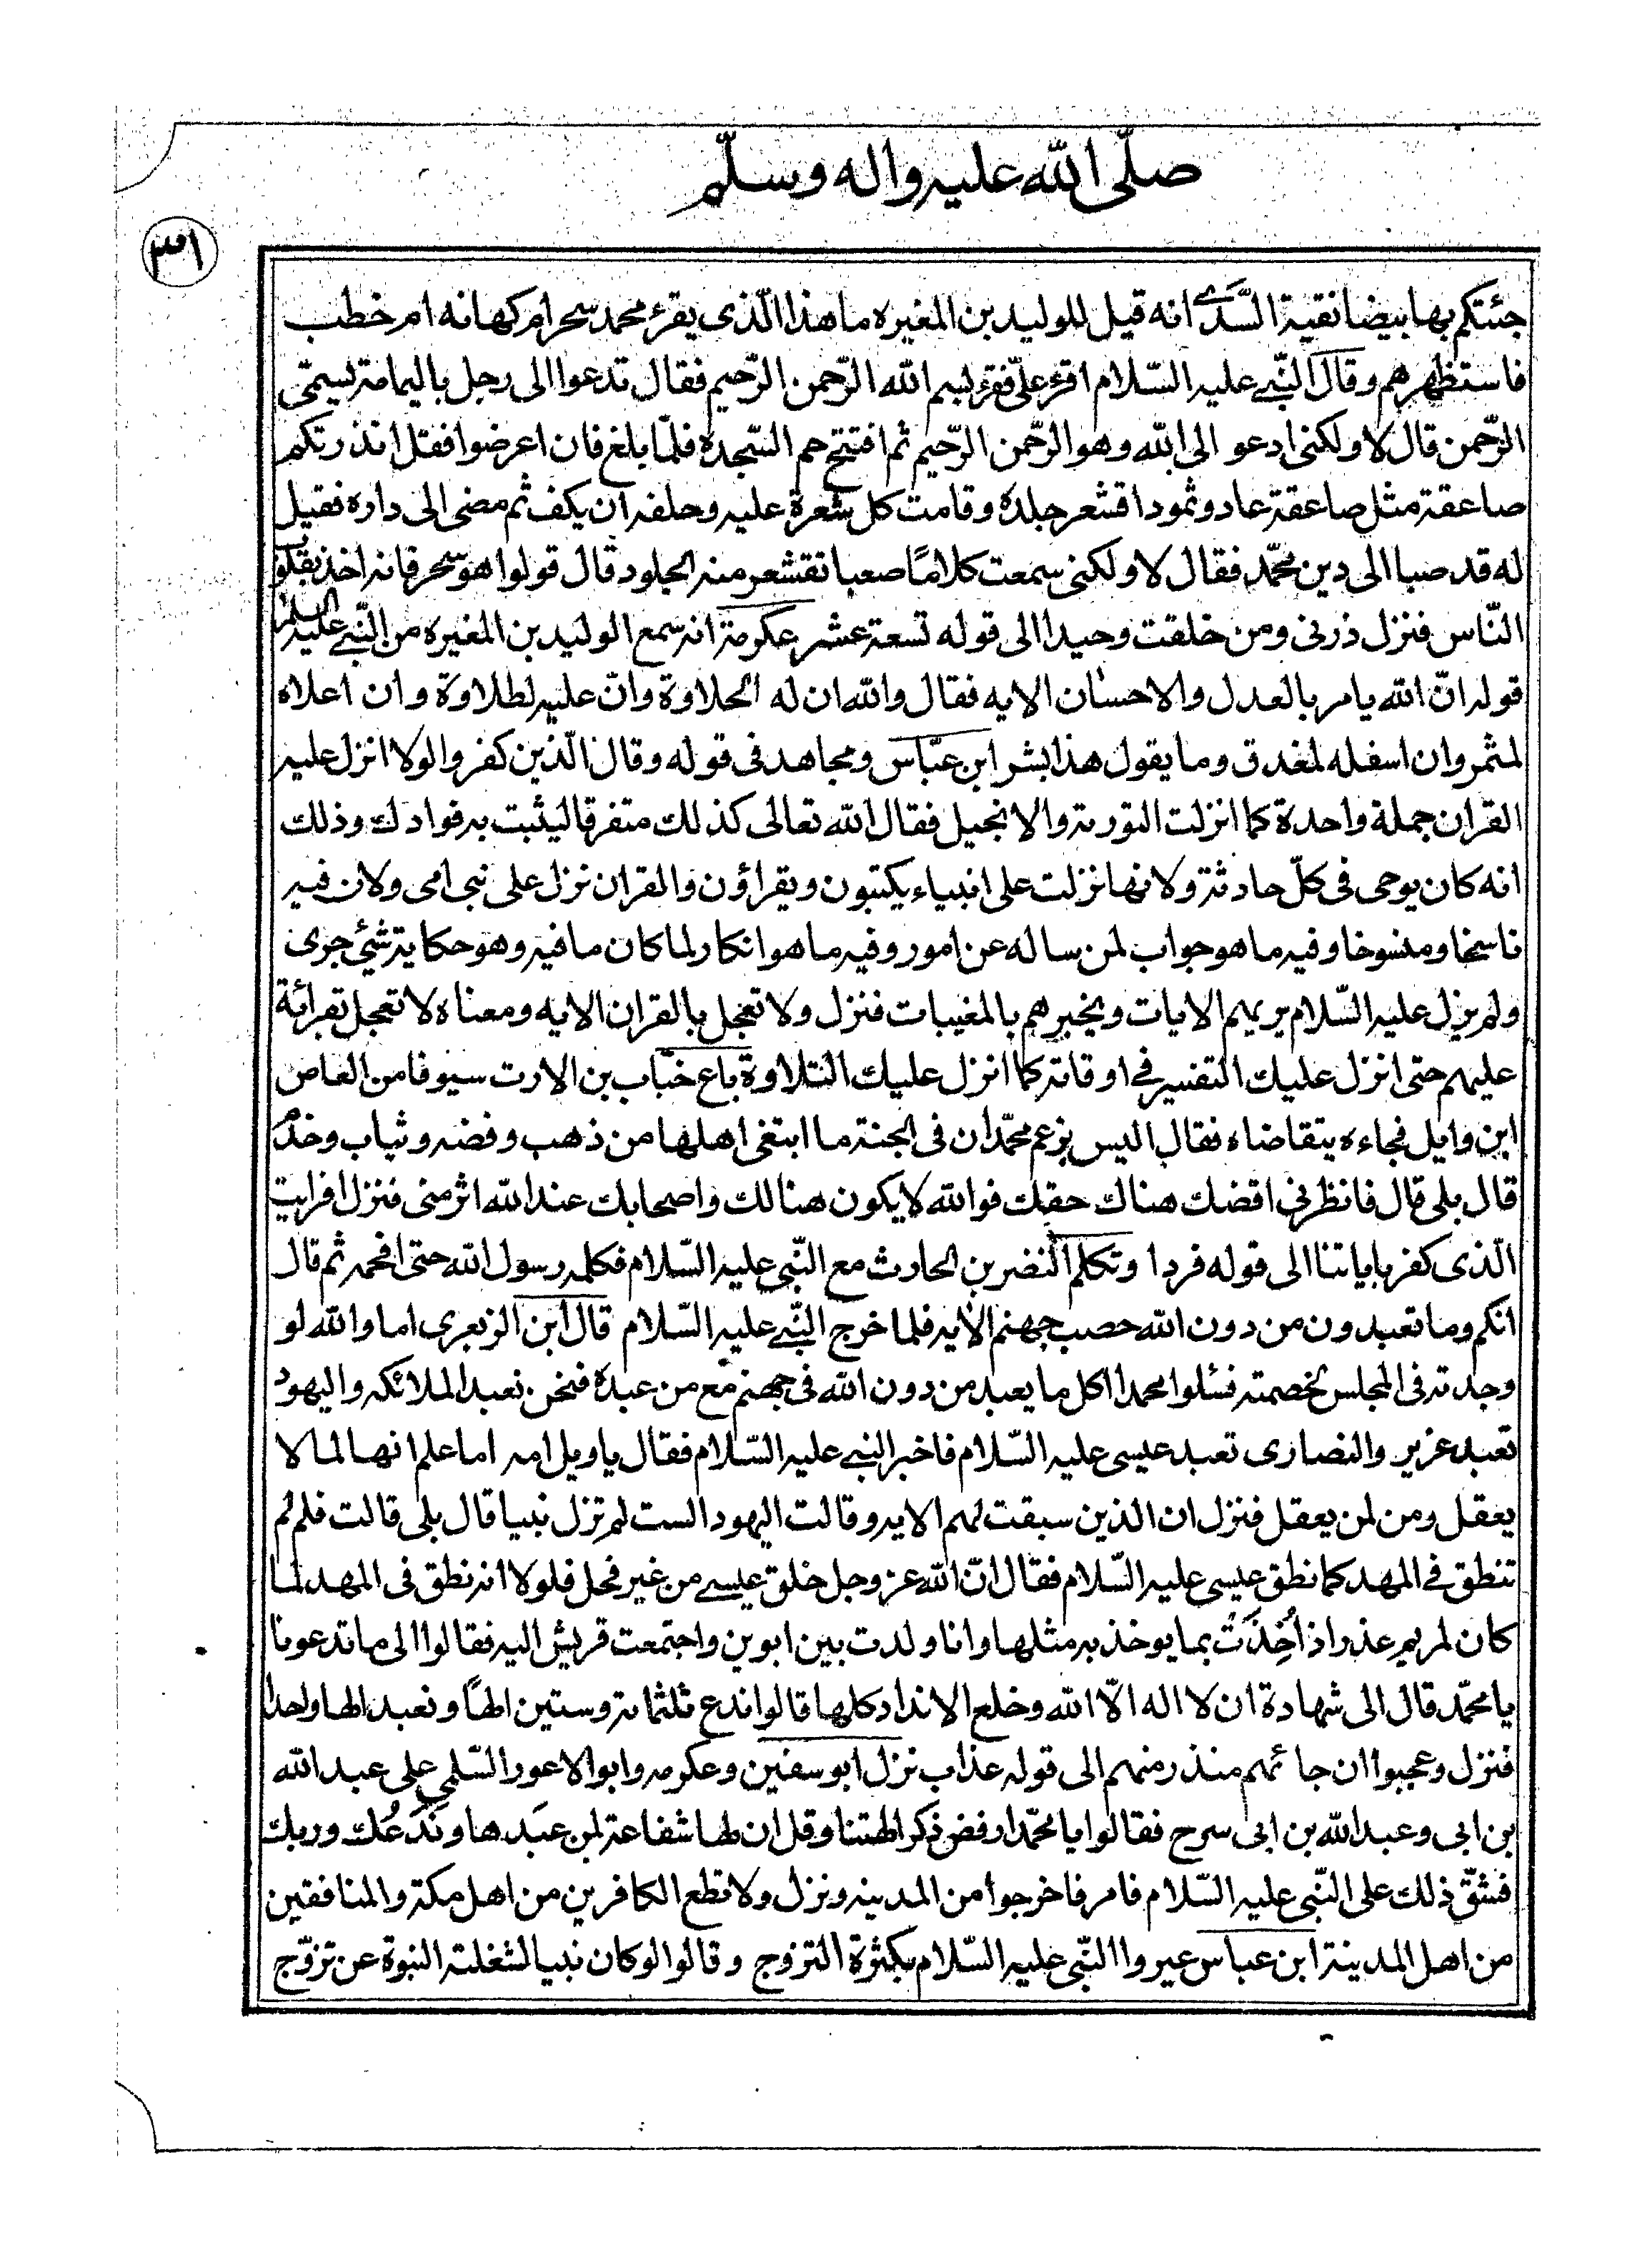 صلّى الله عليه واله وسلّم
٣١
جئتكم بها بيضا نقية السّدى انه قيل للوليد بن المغيره ما هذا الّذى يقرء محمد سحر ام كهانه ام خطب
فاستظهرهم وقال النّبى عليه السّلام اقرء علىّ فقرء بسم الله الرّحمن الرّحيم فقال تدعوا الى رجل باليمامة يسمّى
الرّحمن قال لا ولكنى ادعو الى الله وهو الرّحمن الرّحيم ثم افتتح حم السّجدة فلمّا بلغ فان اعرضوا فقل انذرتكم
صاعقة مثل صاعقة عاد وثمود اقشعر جلده وقامت كل شعرة عليه وحلفه ان يكف ثم مضى الى داره فقيل
له قد صبا الى دين محمّد فقال لا ولكنى سمعت كلامًا صعبا تقشعر منه الجلود قال قولوا هو سحر فانه اخذ بقلوب
النّاس فنزل ذرنى ومن خلقت وحيدا الى قوله تسعة عشر عكرمة انه سمع الوليد بن المغيره من النّبى عليه السلم
قوله انّ الله يامر بالعدل والاحسان الايه فقال والله ان له الحلاوة وانّ عليه لطلاوة وان اعلاه
لمثمر وان اسفله لمغدق وما يقول هذا بشر ابن عبّاس ومجاهد فى قوله وقال الّذين كفروا لولا انزل عليه
القران جملة واحدة كما انزلت التورية والانجيل فقال الله تعالى كذلك متفرقا ليثبت به فوادك وذلك
انه كان يوحى فى كلّ حادثة ولانها نزلت على انبياء يكتبون ويقراؤن والقران نزل على نبى امى ولان فيه
ناسخا ومنسوخا وفيه ما هو جواب لمن ساله عن امور وفيه ما هو انكار لما كان ما فيه وهو حكاية شئ جرى
ولم يزل عليه السّلام يريهم الايات ويخبرهم بالمغيبات فنزل ولا تعجل بالقران الايه ومعناه لا تعجل بقرائة
عليهم حتى انزل عليك التفسير فى اوقاته كما انزل عليك التلاوة باع خبّاب بن الارت سيوفا من العاص
ابن وايل فجاءه يتقاضاه فقال اليس يزعم محمّد ان فى الجنة ما ابتغى اهلها من ذهب وفضه وثياب وخدم
قال بلى قال فانظرنى اقضك هناك حقك فوالله لا يكون هنالك واصحابك عند الله اثر منى فنزل افرايت
الّذى كفر باياتنا الى قوله فردا وتكلم النضر بن الحارث مع النّبى عليه السّلام فكلمه رسول الله حتى افحمه ثم قال
انكم وما تعبدون من دون الله حصب جهنم الايه فلما خرج النّبى عليه السّلام قال ابن الزبعرى اما والله لو
وجدته فى المجلس لخصمته فسئلوا محمدا اكل ما يعبد من دون الله فى جهنم مع من عبده فنحن نعبد الملائكه واليهود
تعبد عزير والنصارى تعبد عيسى عليه السّلام فاخبر النبى عليه السّلام فقال يا ويل امه اما علم انها لما لا
يعقل ومن لمن يعقل فنزل ان الذين سبقت لهم الايه وقالت اليهود الست لم تزل نبيا قال بلى قالت فلم لم
تنطق فى المهد كما نطق عيسى عليه السّلام فقال انّ الله عز وجل خلق عيسى من غير فحل فلولا انه نطق فى المهد لما
كان لمريم عذر اذ اُخِذَتْ بما يوخذ به مثلها وانا ولدت بين ابوين واجتمعت قريش اليه فقالوا الى ما تدعونا
يا محمّد قال الى شهادة ان لا اله الّا الله وخلع الانداد كلها قالوا ندع ثلثمائة وستين الهًا ونعبد الها واحدا
فنزل وعجبوا ان جائهم منذر منهم الى قوله عذاب نزل ابو سفين وعكرمه وابو الاعور السّلمى على عبد الله
بن ابى وعبد الله بن ابى سرح فقالوا يا محمّد ارفض ذكر الهتنا وقل ان لها شفاعة لمن عبَدها ونَدَعُك وربك
فشقّ ذلك على النّبى عليه السّلام فامر فاخرجوا من المدينه ونزل ولا تطع الكافرين من اهل مكة والمنافقين
من اهل المدينة ابن عباس عيروا النّبى عليه السّلام بكثرة التزوج وقالوا لو كان نبيا لشغلته النبوة عن تزوّج